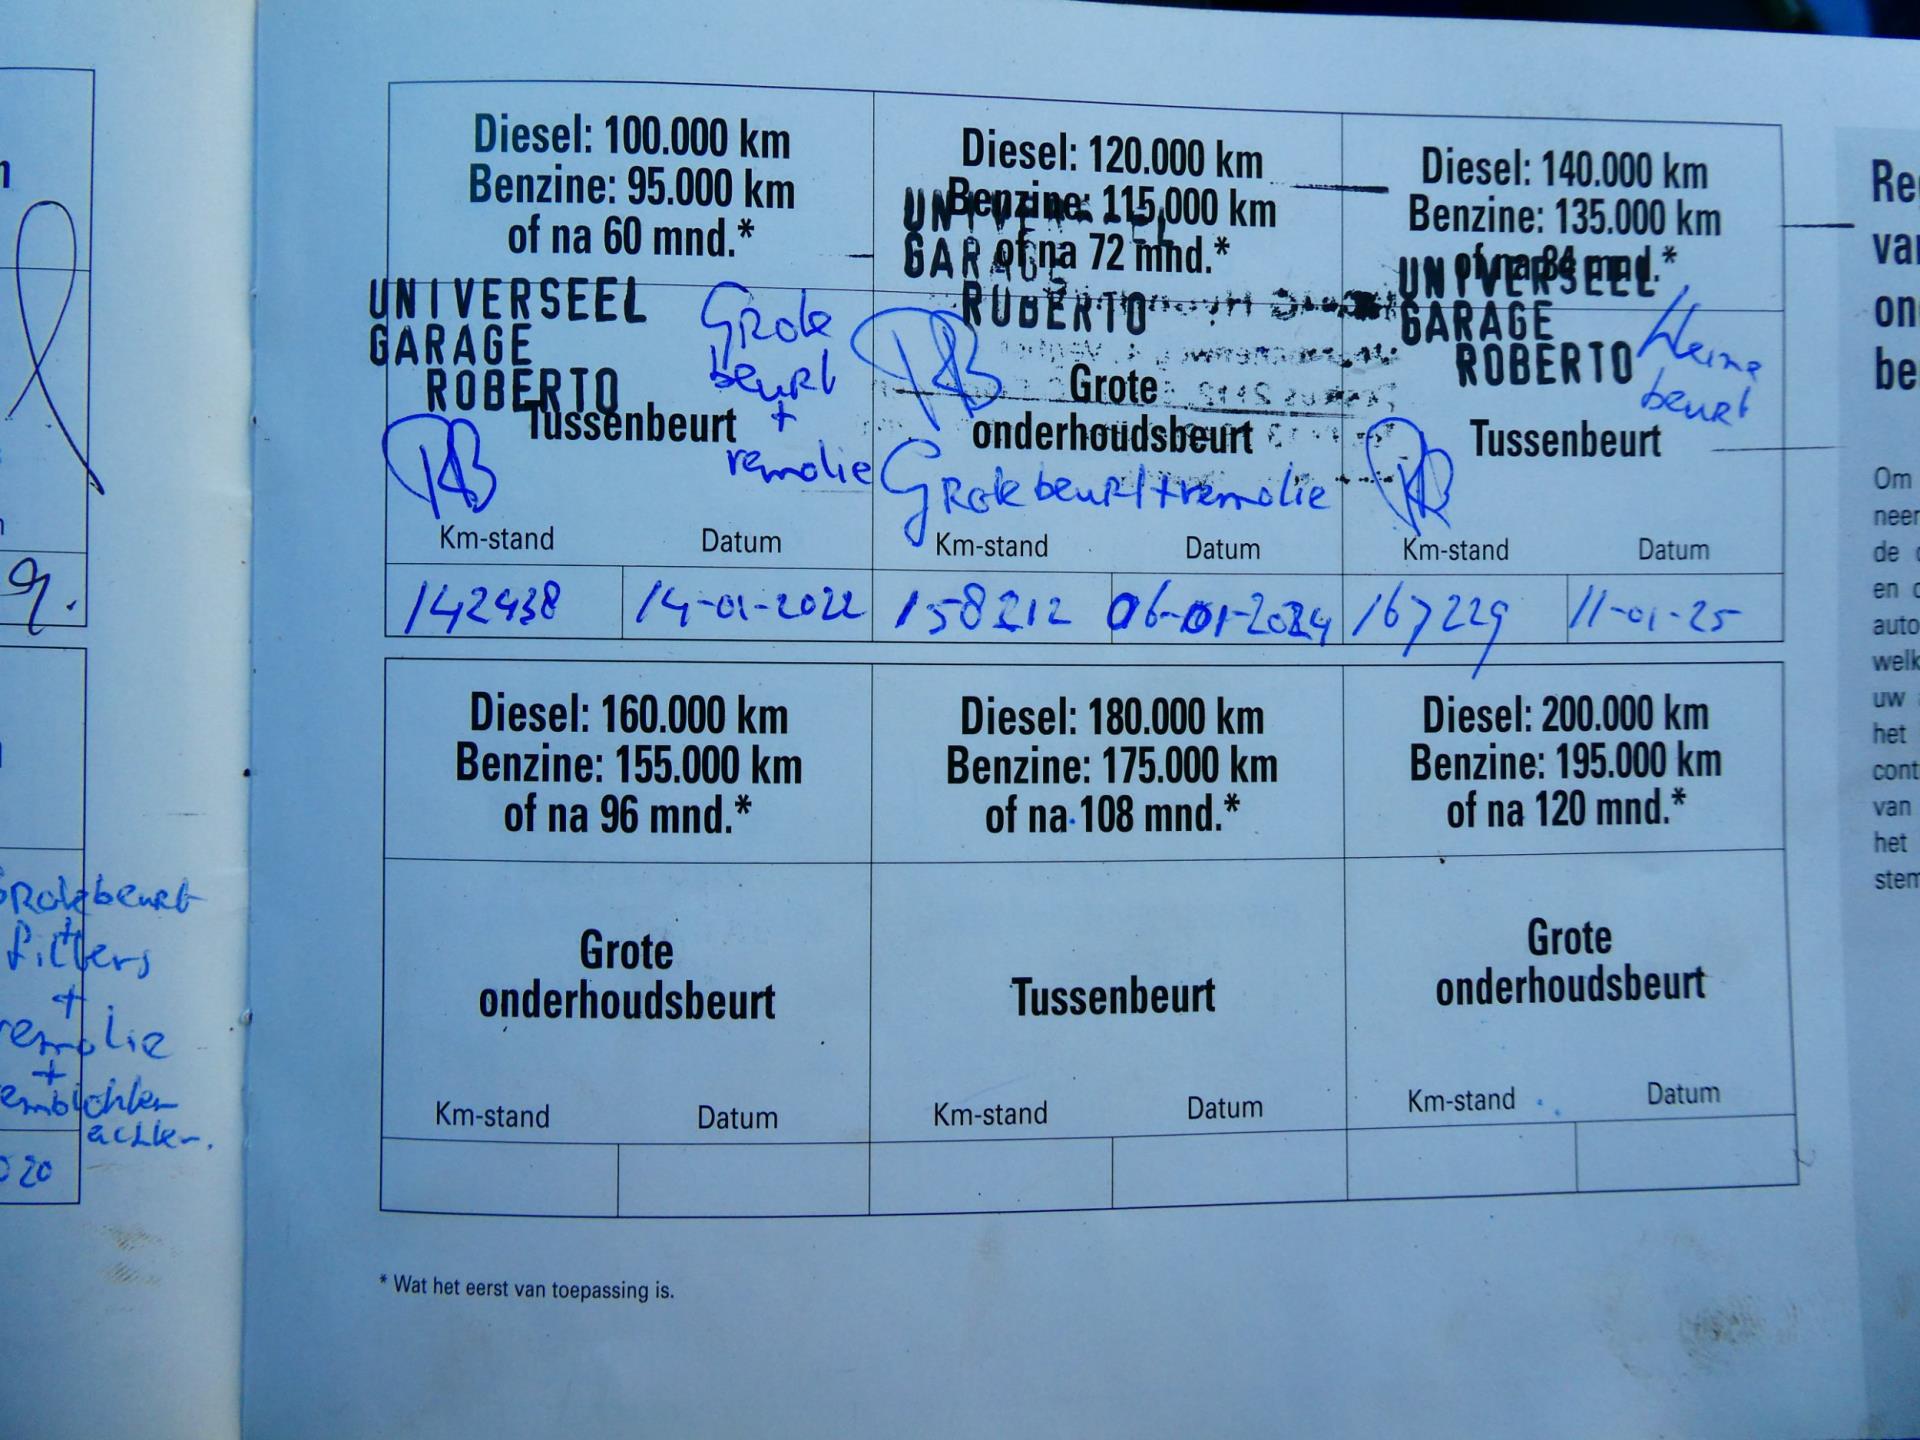 Diesel: 100.000 km
Benzine: 95.000 km
of na 60 mnd.*
UNIVERSEEL
GARAGE
ROBERTO
Grote
beurt
+
remolie
Tussenbeurt
Km-stand Datum
142438 14-01-2022
Diesel: 120.000 km
Benzine: 115.000 km
of na 72 mnd.*
UNIVERSEEL
GARAGE
ROBERTO
Grote
onderhoudsbeurt
Grote beurt + remolie
Km-stand Datum
158212 06-01-2024
Diesel: 140.000 km
Benzine: 135.000 km
of na 84 mnd.*
UNIVERSEEL
GARAGE
ROBERTO
kleine
beurt
Tussenbeurt
Km-stand Datum
167229 11-01-25
Diesel: 160.000 km
Benzine: 155.000 km
of na 96 mnd.*
Grote
onderhoudsbeurt
Km-stand Datum
Diesel: 180.000 km
Benzine: 175.000 km
of na 108 mnd.*
Tussenbeurt
Km-stand Datum
Diesel: 200.000 km
Benzine: 195.000 km
of na 120 mnd.*
Grote
onderhoudsbeurt
Km-stand Datum
* Wat het eerst van toepassing is.
Grote beurt
+
filters
+
remolie
+
achter.
20
Om
de
en
auto
welk
uw
het
cont
van
het
stem